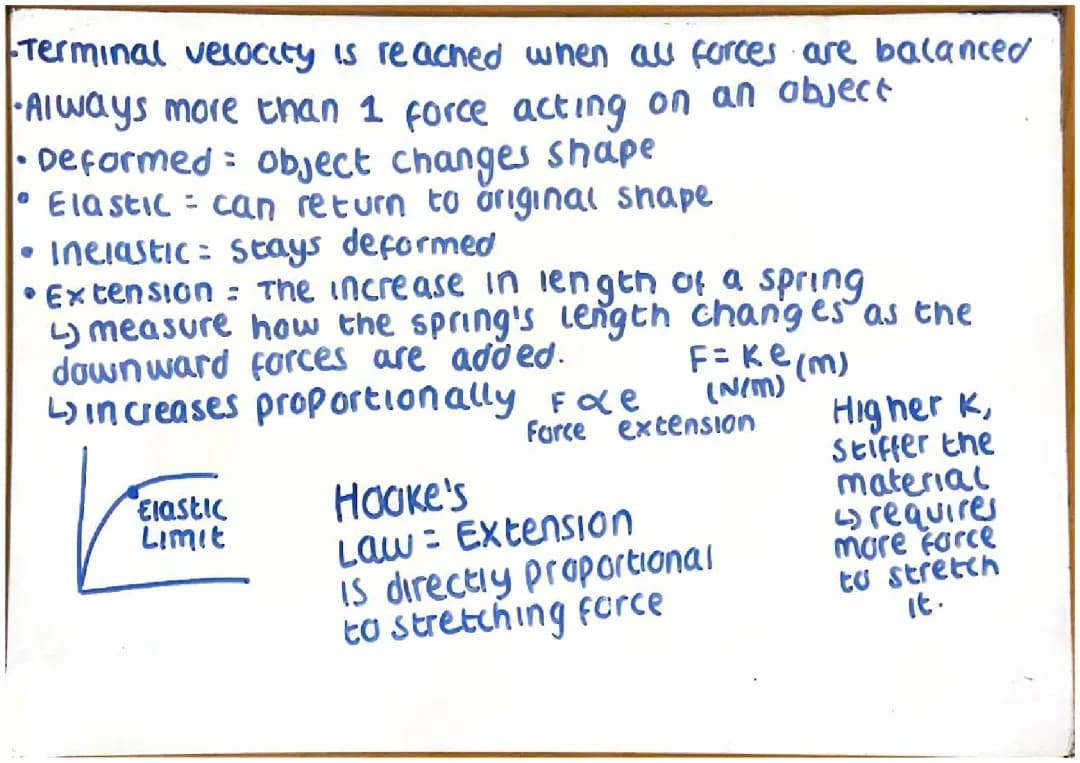 •Terminal velocity is reached when all forces are balanced
•Always more than 1 force acting on an object
• Deformed = object changes shape
• Elastic = can return to original shape
• Inelastic = stays deformed
• Extension = The increase in length of a spring
↳ measure how the spring's length changes as the
downward forces are added.
F = Ke (m)
(N/m)
↳ increases proportionally F ∝ e
Force extension
Higher K,
stiffer the
material
↳ requires
more force
to stretch
it.
Elastic
Limit
Hooke's
Law = Extension
is directly proportional
to stretching force